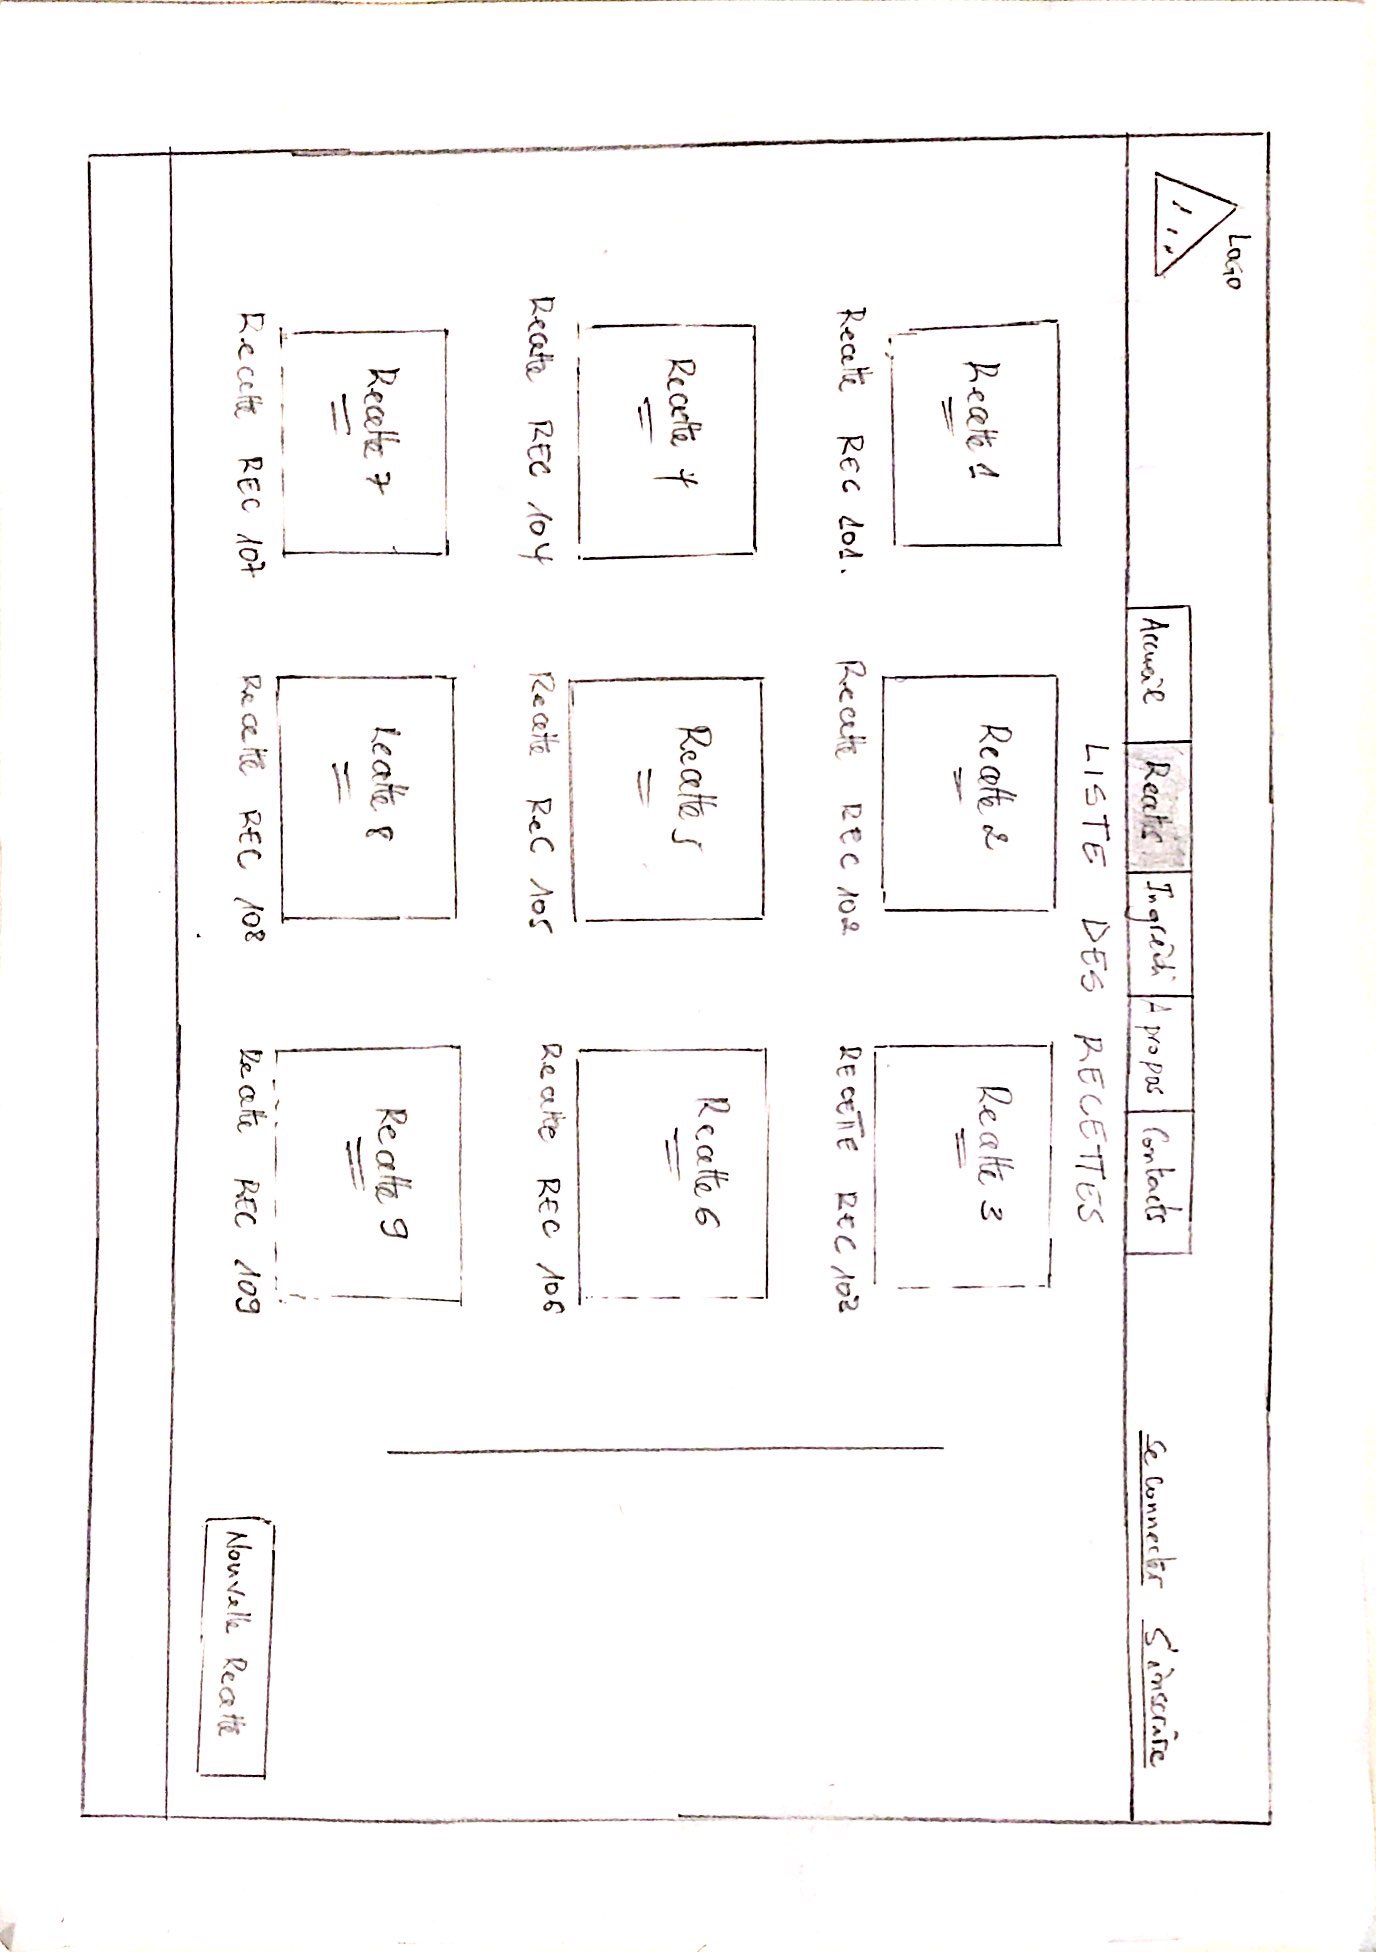 LOGO
Accueil Recettes Ingrédi Apropos Contacts
Se Connecter S'inscrire
LISTE DES RECETTES
Recette 1 Recette 2 Recette 3
Recette REC 101. Recette REC 102 RECETTE REC 102
Recette 4 Recette 5 Recette 6
Recette REC 104 Recette ReC 105 Recette REC 106
Recette 7 Recette 8 Recette 9
Recette REC 107 Recette REC 108 Recette REC 109
Nouvelle Recette